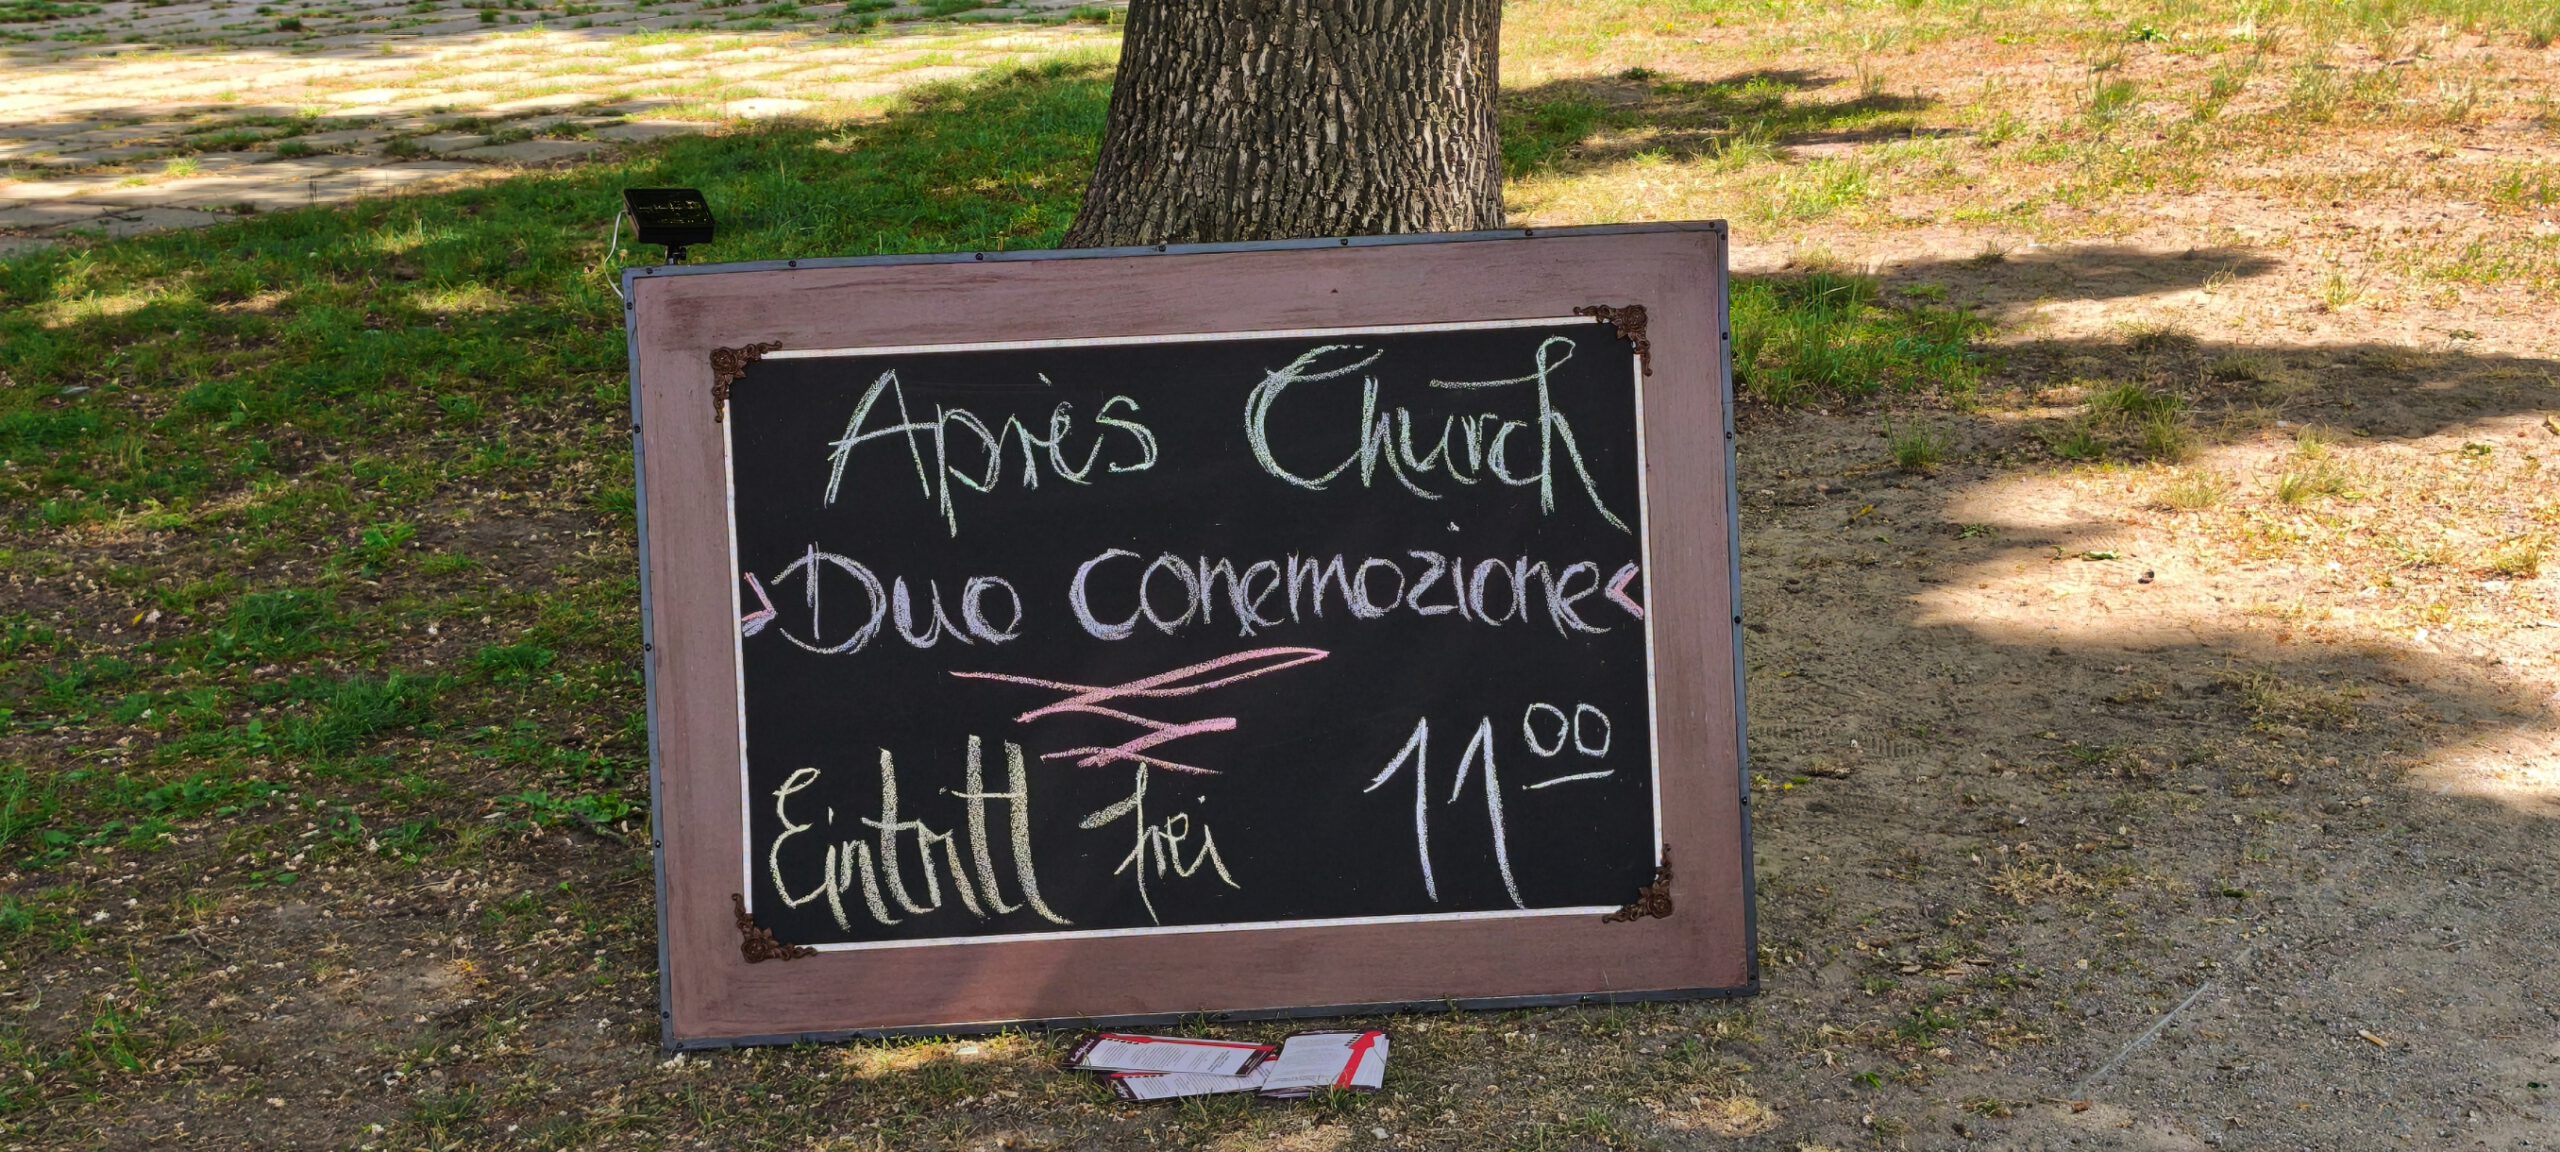 Après Church
>Duo Conemozione<
Eintritt frei 11⁰⁰